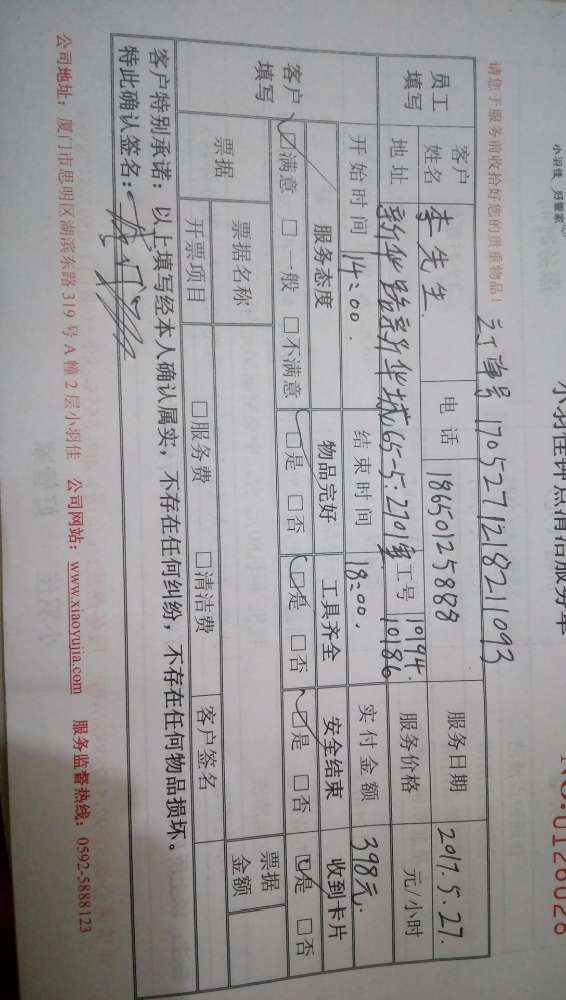 小羽佳 好管家
小羽佳钟点清洁服务单
NO.0126026
请您于服务前收拾好您的贵重物品！ 订单号 1705271218211093
员工填写 客户姓名 李先生 电话 18650125888 服务日期 2017.5.27.
地址 新华路新华城65-5:2701室 工号 10194. 10186 服务价格 元/小时
开始时间 14:00. 结束时间 18:00. 实付金额 398元.
客户填写 服务态度 物品完好 工具齐全 安全结束 收到卡片
☑满意 □一般 □不满意 ☑是 □否 ☑是 □否 ☑是 □否 ☑是 □否
票据 票据名称 票据金额
开票项目 □服务费 □清洁费 客户签名
客户特别承诺：以上填写经本人确认属实，不存在任何纠纷，不存在任何物品损坏。
特此确认签名：
公司地址：厦门市思明区湖滨东路 319 号 A 幢 2 层小羽佳 公司网站：www.xiaoyujia.com 服务监督热线：0592-5888123